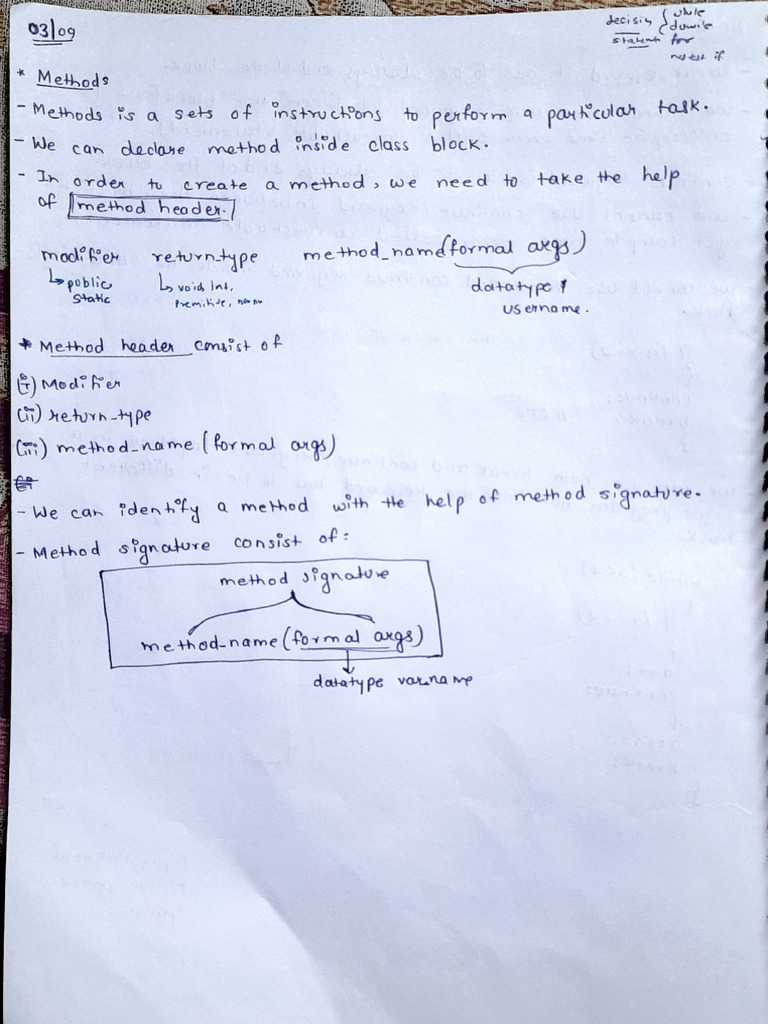 03/09
decisin { while
statement dowile
for
nested if
* Methods
- Methods is a sets of instructions to perform a particular task.
- We can declare method inside class block.
- In order to create a method, we need to take the help
of method header.
modifier return-type method_name(formal args)
↳ public ↳ void, int, datatype,
static premitive, username.
* Method header consist of
(i) Modifier
(ii) return-type
(iii) method-name (formal args)
- We can identify a method with the help of method signature.
- Method signature consist of:
method signature
method-name (formal args)
datatype var.name